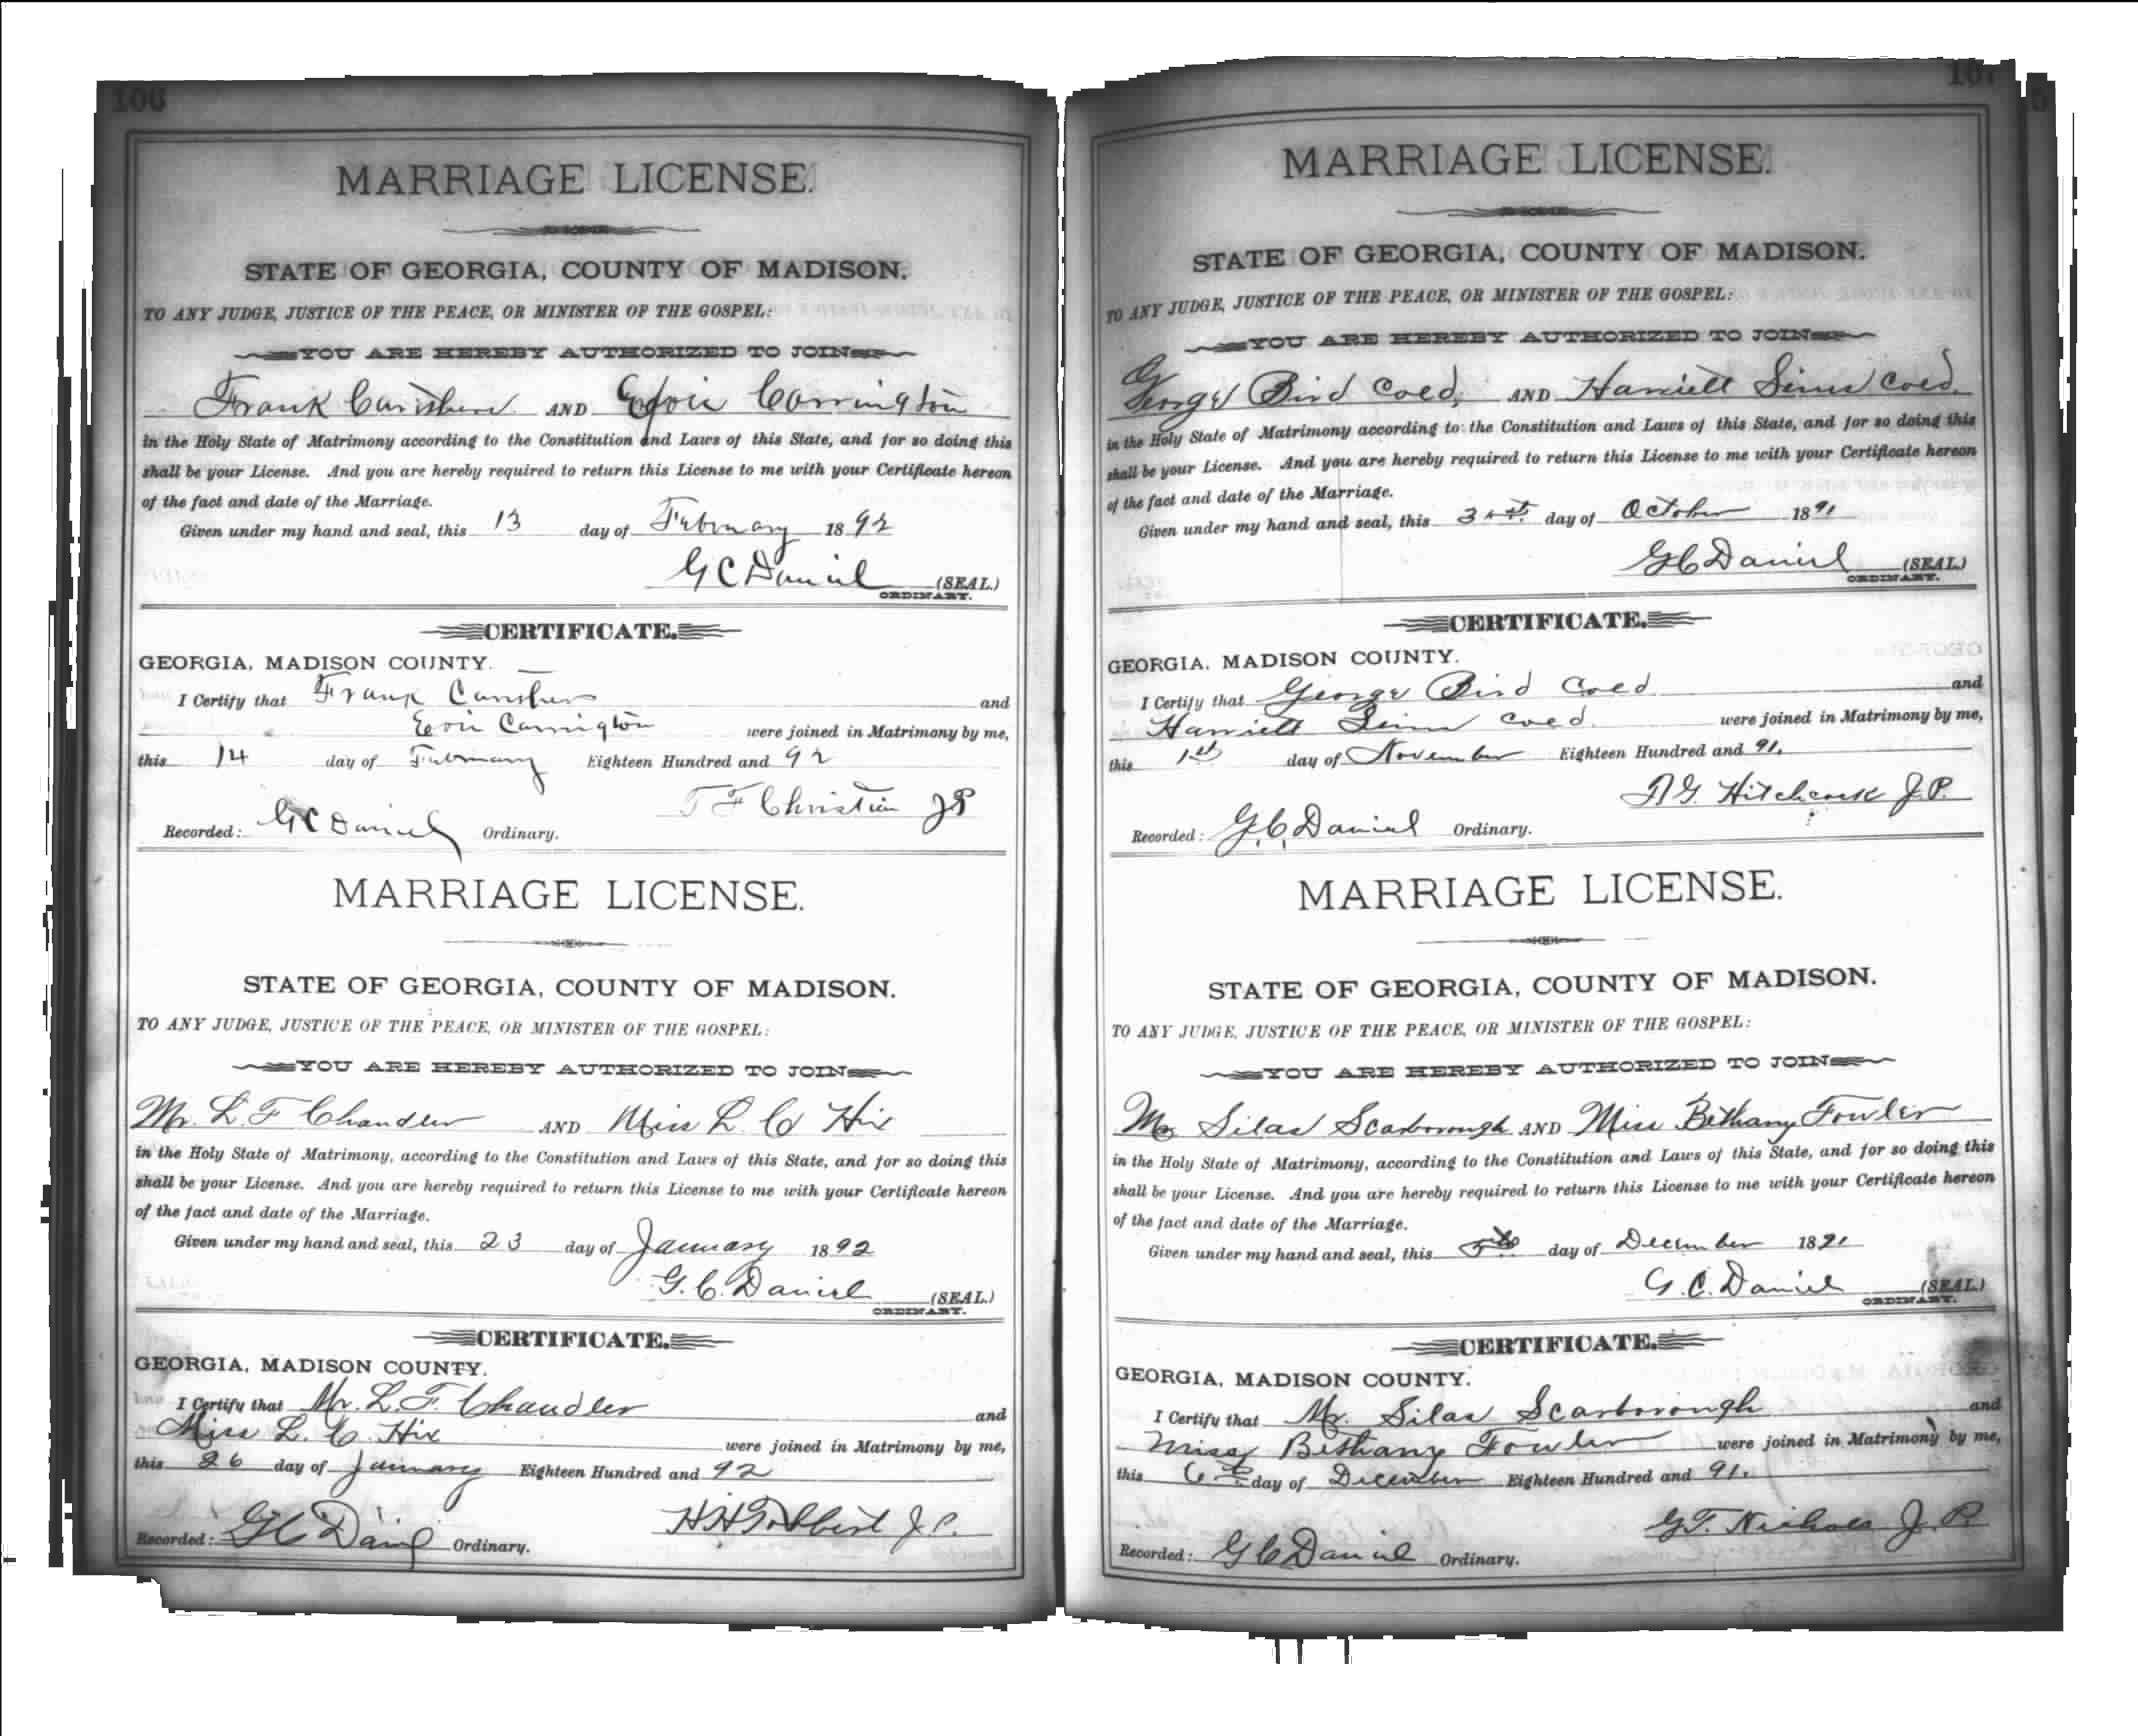 106
MARRIAGE LICENSE.
STATE OF GEORGIA, COUNTY OF MADISON.
TO ANY JUDGE, JUSTICE OF THE PEACE, OR MINISTER OF THE GOSPEL:
YOU ARE HEREBY AUTHORIZED TO JOIN
Frank AND Carrington
in the Holy State of Matrimony according to the Constitution and Laws of this State, and for so doing this
shall be your License. And you are hereby required to return this License to me with your Certificate hereon
of the fact and date of the Marriage.
Given under my hand and seal, this 13 day of February 1892
G C Daniel (SEAL.)
ORDINARY.
CERTIFICATE.
GEORGIA, MADISON COUNTY.
I Certify that Frank and
Carrington were joined in Matrimony by me,
this 14 day of February Eighteen Hundred and 92
T F Christian JP
Recorded: G C Daniel Ordinary.
MARRIAGE LICENSE.
STATE OF GEORGIA, COUNTY OF MADISON.
TO ANY JUDGE, JUSTICE OF THE PEACE, OR MINISTER OF THE GOSPEL:
YOU ARE HEREBY AUTHORIZED TO JOIN
Mr. L. F Chandler AND Miss L. C Hix
in the Holy State of Matrimony, according to the Constitution and Laws of this State, and for so doing this
shall be your License. And you are hereby required to return this License to me with your Certificate hereon
of the fact and date of the Marriage.
Given under my hand and seal, this 23 day of January 1892
G. C. Daniel (SEAL.)
ORDINARY.
CERTIFICATE.
GEORGIA, MADISON COUNTY.
I Certify that Mr. L. F. Chandler and
Miss L. C. Hix were joined in Matrimony by me,
this 26 day of January Eighteen Hundred and 92
H H J. P.
Recorded: G C Daniel Ordinary.
107
MARRIAGE LICENSE.
STATE OF GEORGIA, COUNTY OF MADISON.
TO ANY JUDGE, JUSTICE OF THE PEACE, OR MINISTER OF THE GOSPEL:
YOU ARE HEREBY AUTHORIZED TO JOIN
George Bird Coled, AND Harriett Sims Coled.
in the Holy State of Matrimony according to the Constitution and Laws of this State, and for so doing this
shall be your License. And you are hereby required to return this License to me with your Certificate hereon
of the fact and date of the Marriage.
Given under my hand and seal, this 31st day of October 1891
G C Daniel (SEAL.)
ORDINARY.
CERTIFICATE.
GEORGIA, MADISON COUNTY.
I Certify that George Bird Coled and
Harriett Sims Coled. were joined in Matrimony by me,
this 1st day of November Eighteen Hundred and 91.
Hitchcock J. P.
Recorded: G. C. Daniel Ordinary.
MARRIAGE LICENSE.
STATE OF GEORGIA, COUNTY OF MADISON.
TO ANY JUDGE, JUSTICE OF THE PEACE, OR MINISTER OF THE GOSPEL:
YOU ARE HEREBY AUTHORIZED TO JOIN
Mr Silas Scarborough AND Miss Bethany Fowler
in the Holy State of Matrimony, according to the Constitution and Laws of this State, and for so doing this
shall be your License. And you are hereby required to return this License to me with your Certificate hereon
of the fact and date of the Marriage.
Given under my hand and seal, this 5th day of December 1891
G. C. Daniel (SEAL.)
ORDINARY.
CERTIFICATE.
GEORGIA, MADISON COUNTY.
I Certify that Mr. Silas Scarborough and
Miss Bethany Fowler were joined in Matrimony by me,
this 6th day of December Eighteen Hundred and 91.
G. F. Nichols J. P.
Recorded: G C Daniel Ordinary.